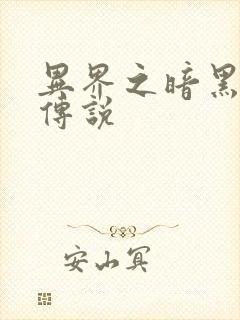 異界之暗黑
傳說
安山冥